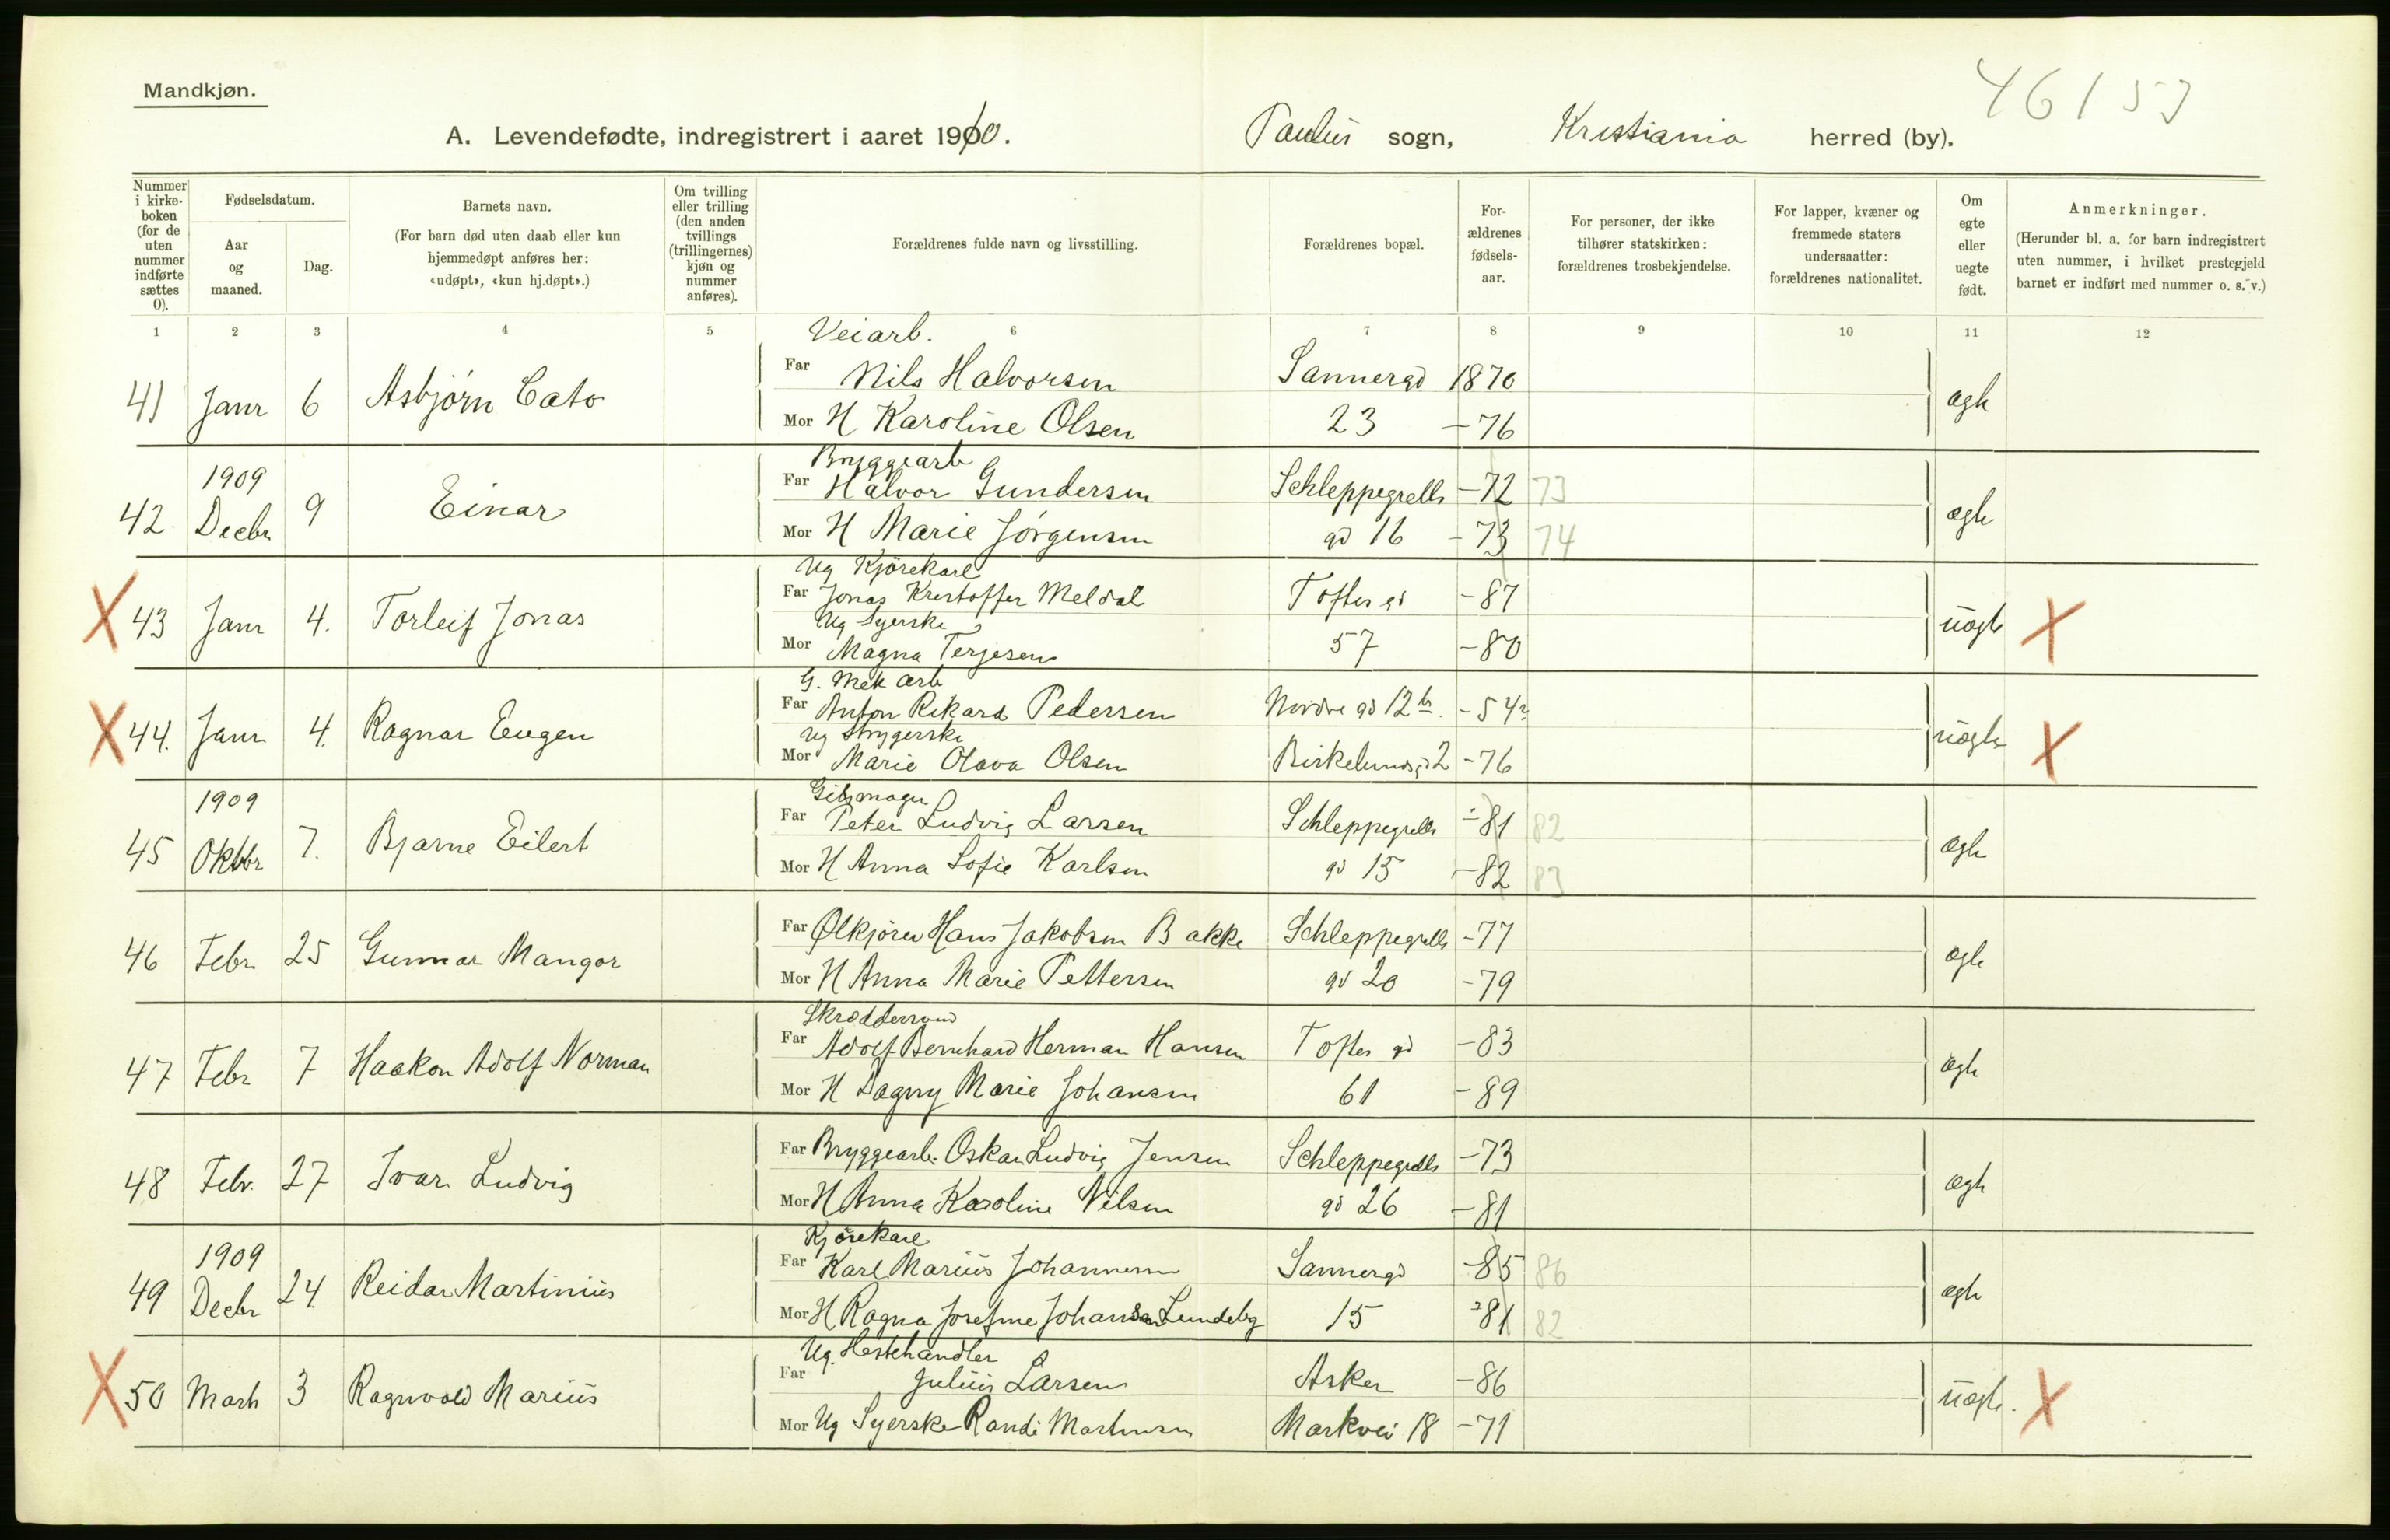 46153
Mandkjøn.
A. Levendefødte, indregistrert i aaret 1910. Paulus sogn, Kristiania herred (by).
Nummer i kirke-boken (for de uten nummer indførte sættes 0).
Fødselsdatum.
Aar og maaned.
Dag.
Barnets navn.
(For barn død uten daab eller kun hjemmedøpt anføres her: «udøpt», «kun hj.døpt».)
Om tvilling eller trilling (den anden tvillings (trillingernes) kjøn og nummer anføres).
Forældrenes fulde navn og livsstilling.
Forældrenes bopæl.
For-ældrenes fødsels-aar.
For personer, der ikke tilhører statskirken: forældrenes trosbekjendelse.
For lapper, kvæner og fremmede staters undersaatter: forældrenes nationalitet.
Om egte eller uegte født.
Anmerkninger.
(Herunder bl. a. for barn indregistrert uten nummer, i hvilket prestegjeld barnet er indført med nummer o. s. v.)
1 2 3 4 5 6 7 8 9 10 11 12
Veiarb.
Far Nils Halvorsen Sannergd 1870
41 Janr 6 Asbjørn Cato ægte
Mor H Karoline Olsen 23 -76
1909 Bryggearb
Far Halvor Gundersen Schleppegrells -72 73
42 Decbr 9 Einar ægte
Mor H Marie Jørgensen gd 16 -73 74
Ug Kjørekarl
Far Jonas Kristoffer Meldal Toftes gd -87
X 43 Janr 4. Torleif Jonas uægte X
Ug Syerske
Mor Magna Terjesen 57 -80
G. Mek arb
Far Anton Rikard Pedersen Nordre gd 12 -54
X 44. Janr 4. Ragnar Eugen uægte X
Ug Strygerske
Mor Marie Olava Olsen Birkelundgd 2 -76
1909 Gibsmager
Far Peter Ludvig Larsen Schleppegrells -81 82
45 Oktbr 7. Bjarne Eilert ægte
Mor H Anna Sofie Karlsen gd 15 -82 83
Far Ølkjører Hans Jakobsen Bakke Schleppegrells -77
46 Febr. 25 Gunnar Mangor ægte
Mor H Anna Marie Pettersen gd 20 -79
Skræddersvend
Far Adolf Bernhard Herman Hansen Toftes gd -83
47 Febr 7 Haakon Adolf Norman ægte
Mor H Dagny Marie Johansen 61 -89
Far Bryggearb. Oskar Ludvig Jensen Schleppegrells -73
48 Febr. 27 Ivar Ludvig ægte
Mor H Anna Karoline Nilsen gd 26 -81
1909 Kjørekarl
Far Karl Marius Johannesen Sannergd -85 86
49 Decbr 24. Reidar Martinius ægte
Mor H Ragna Josefine Johansen Lundeby 15 -81 82
Ug. Hestehandler
Far Julius Larsen Asker -86
X 50 Marts 3 Ragnvald Marius uægte. X
Mor Ug Syerske Randi Martinsen Markvei 18 -71